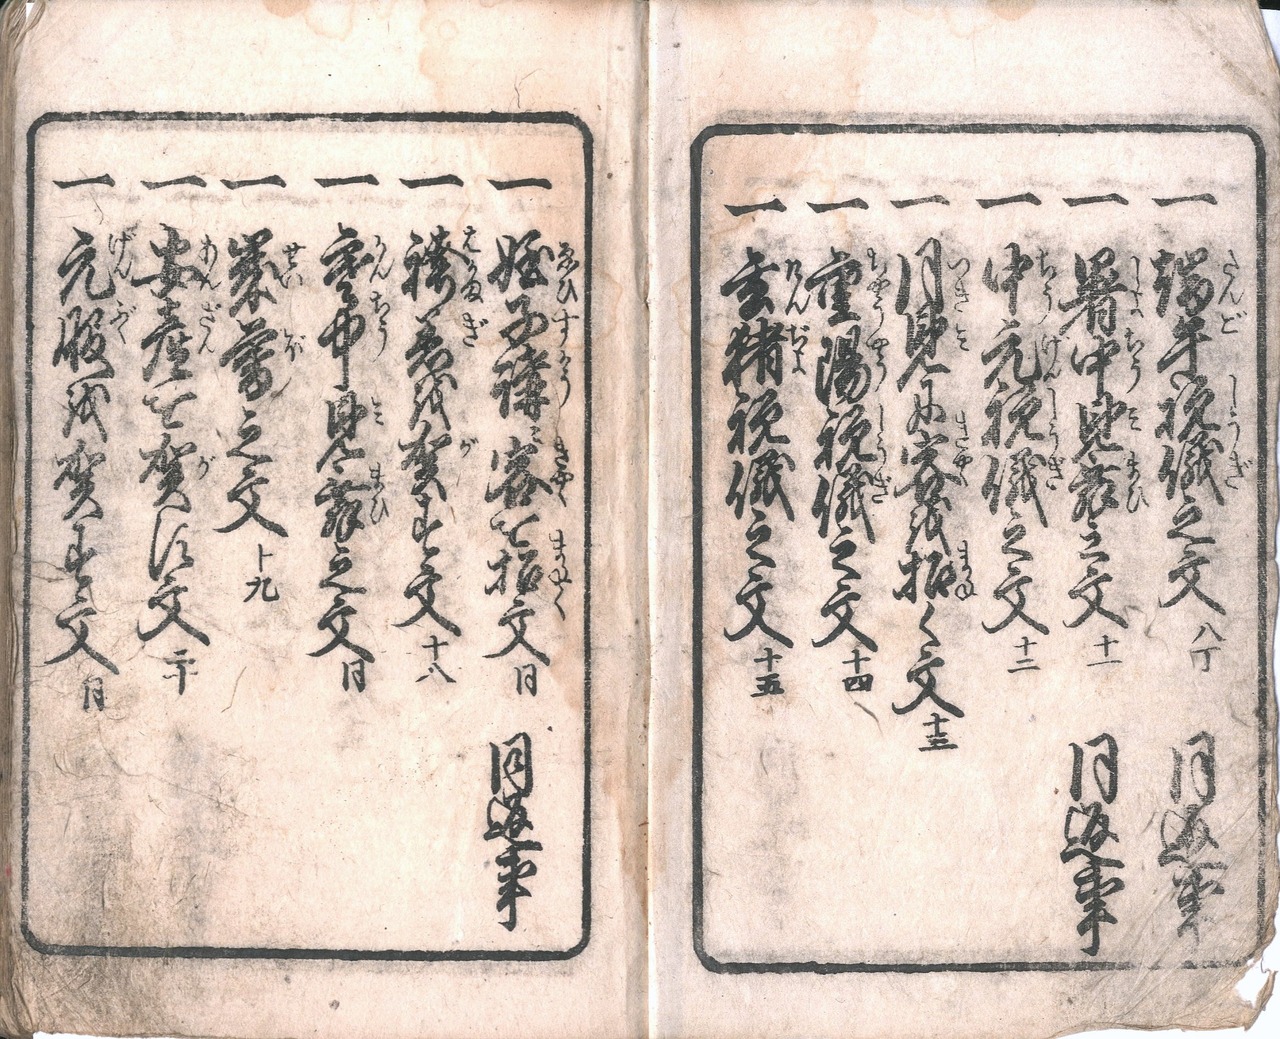 一 端午祝儀之文 八丁 同返事
一 暑中見舞之文 十一 同返事
一 中元祝儀之文 十二
一 月見に客を招く文 十三
一 重陽祝儀之文 十四
一 玄猪祝儀之文 十五
一 蛭子講に客を招文 同 同返事
一 袴着を賀する文 十八
一 寒中見舞之文 同
一 歳暮之文 十九
一 安産を賀す文 二十
一 元服を賀する文 同